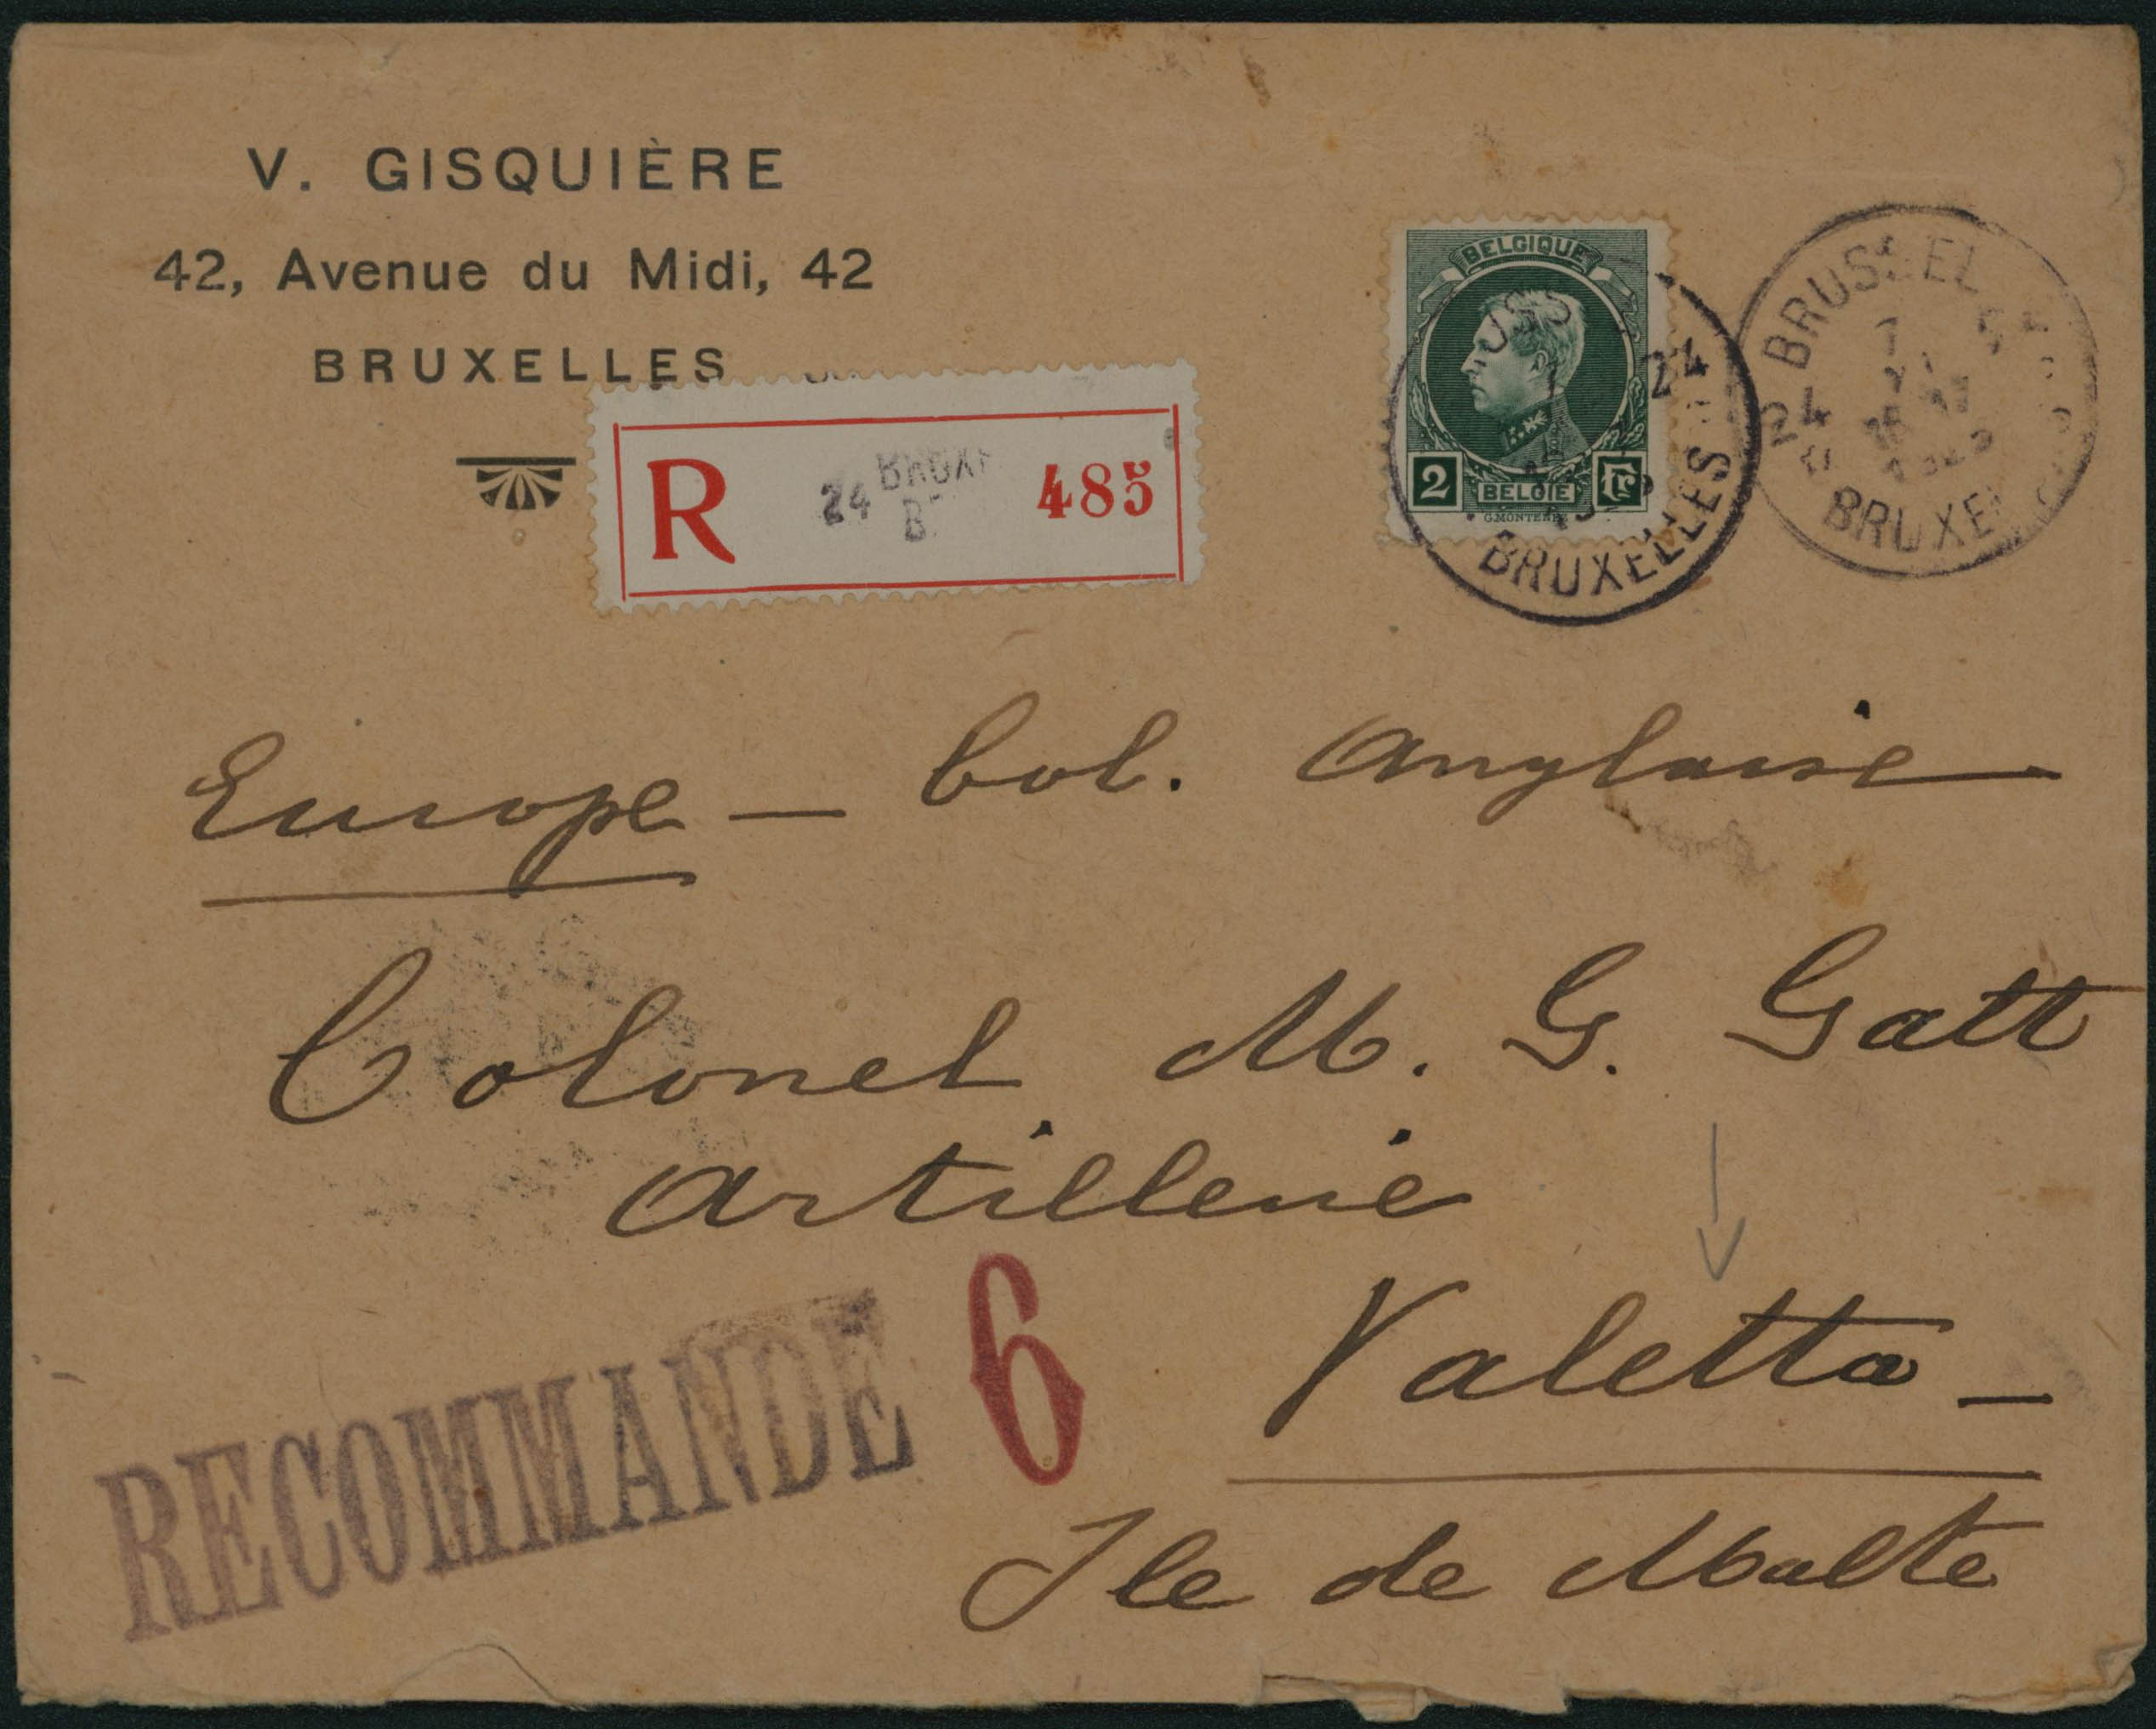 V. GISQUIÈRE
42, Avenue du Midi, 42
BRUXELLES
R 24 485
BELGIQUE
2 BELGIË Fr
24
BRUXELLES
BRUSSEL
24
Europe — Col. Anglaise
Colonel M. G. Gatt
Artillerie
Valetta —
Ile de Malte
RECOMMANDE
6